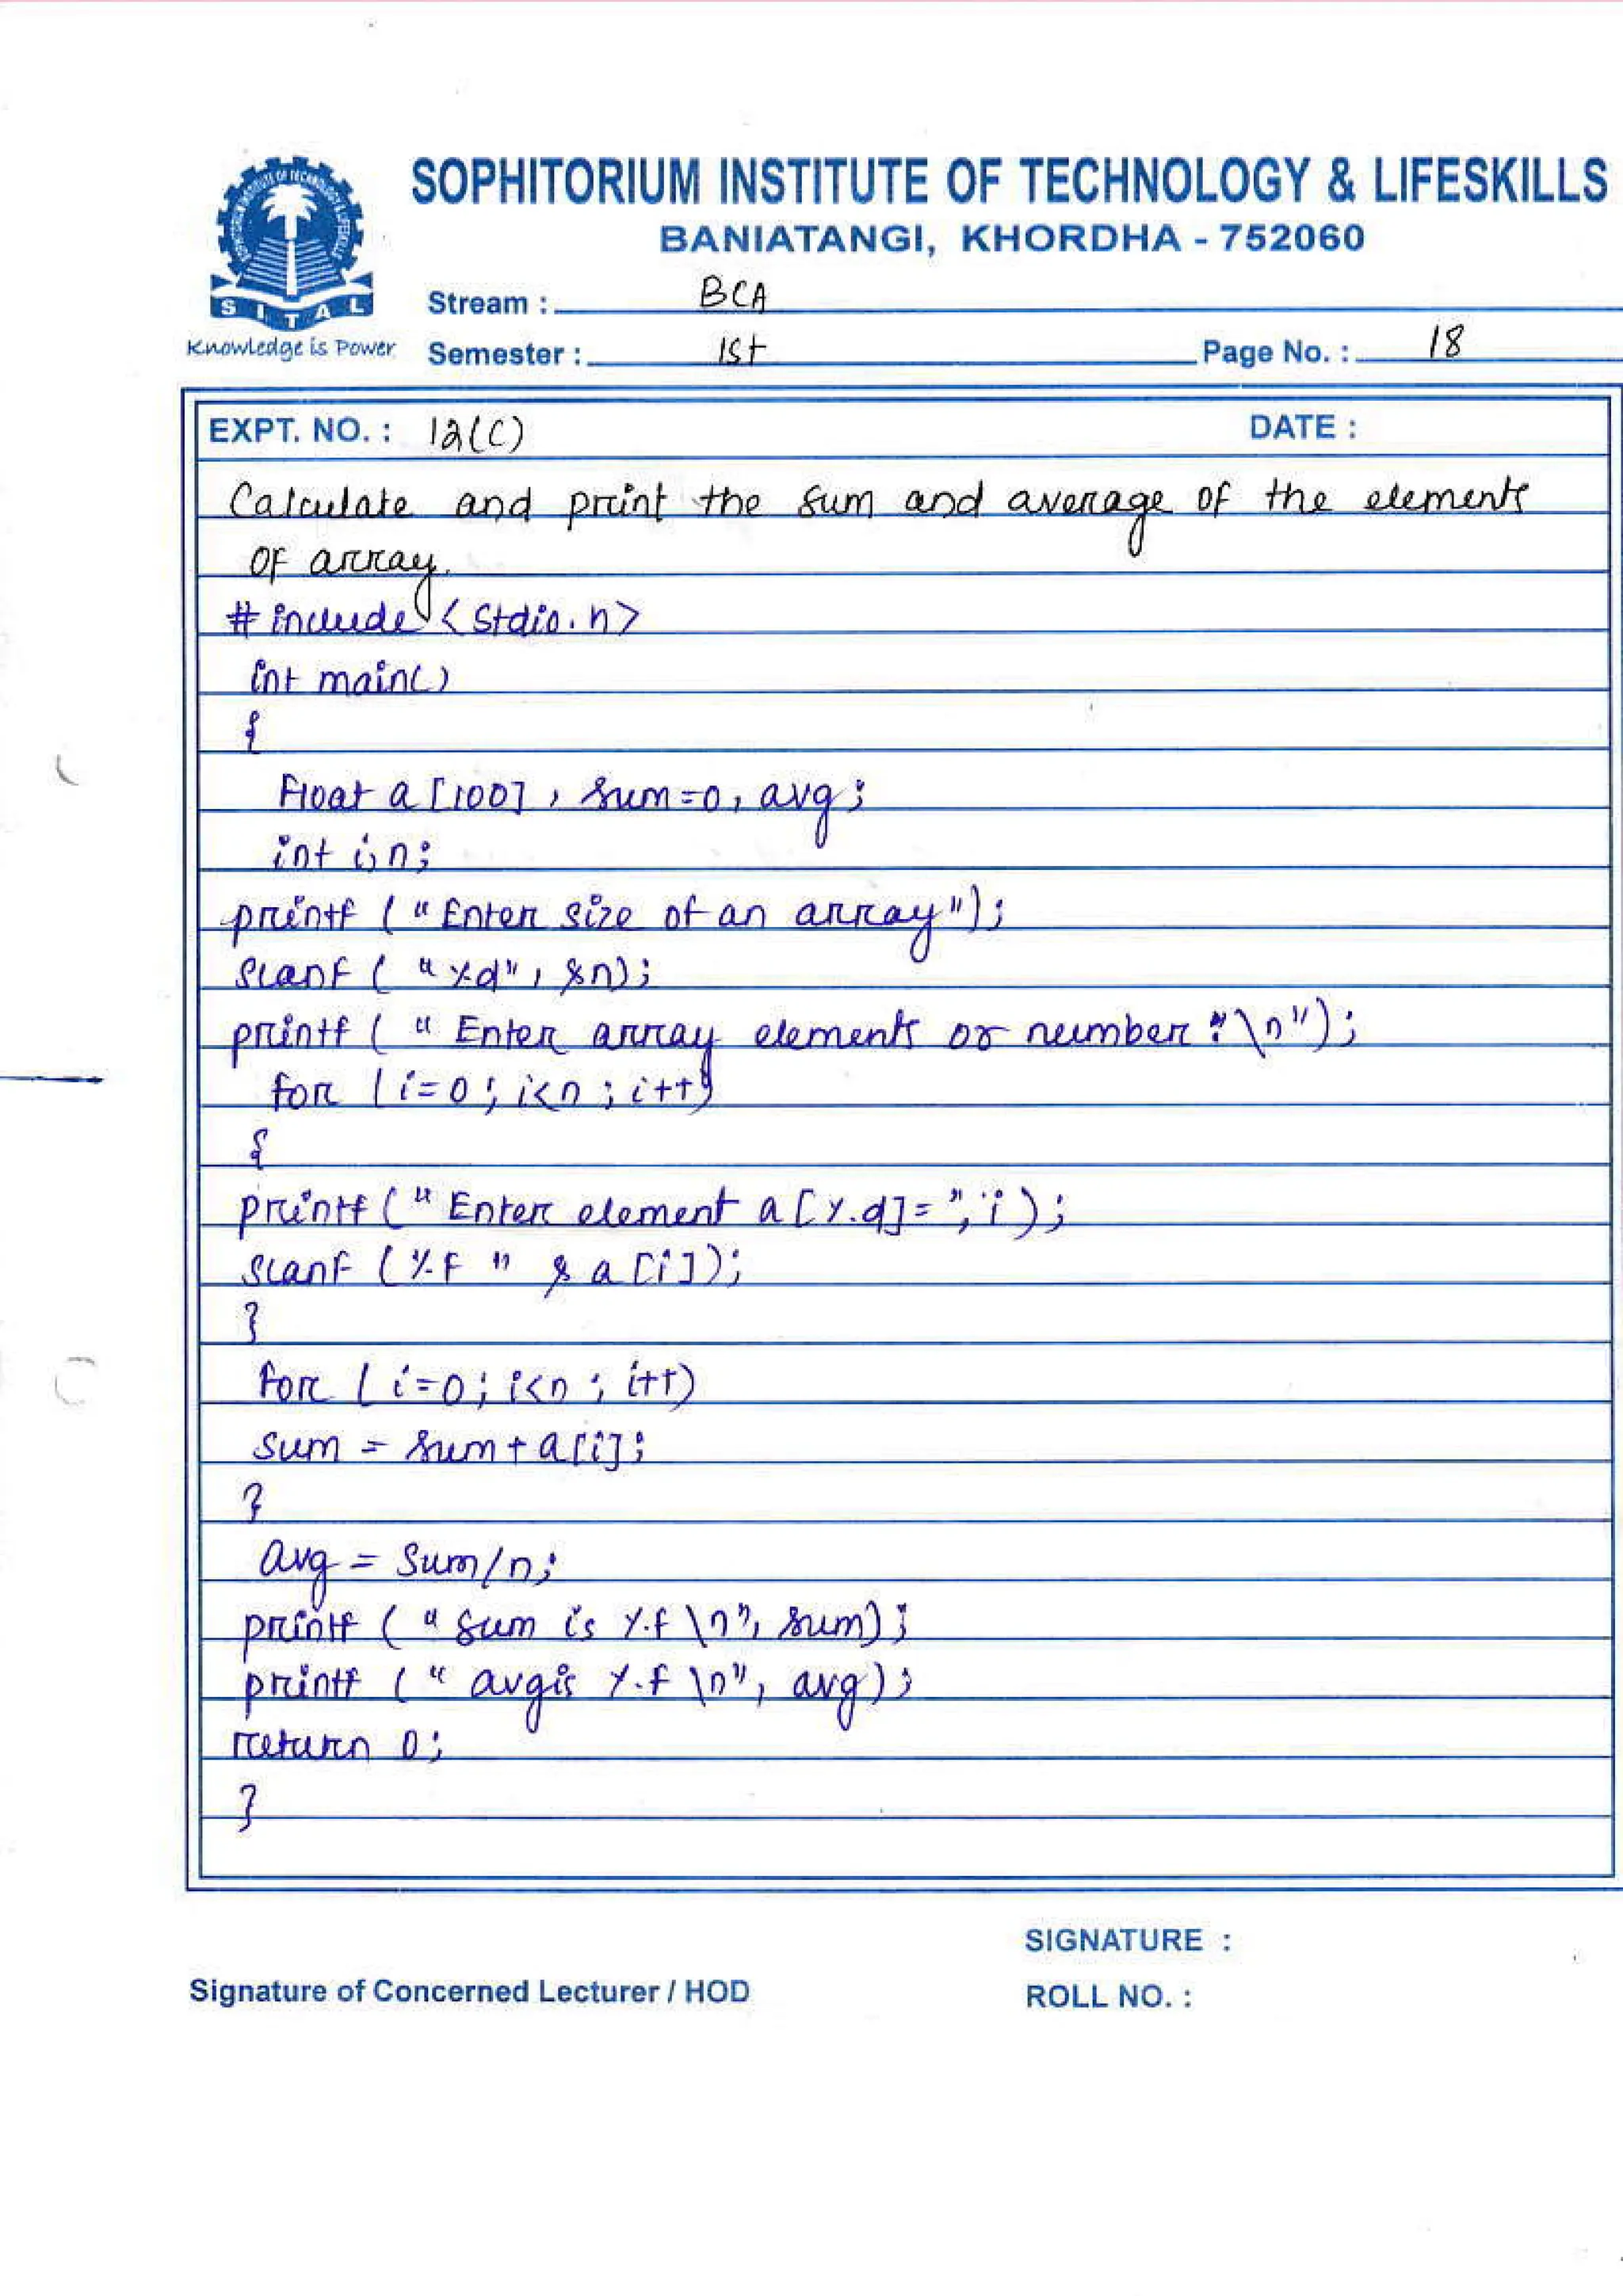 SOPHITORIUM INSTITUTE OF TECHNOLOGY & LIFESKILLS
BANIATANGI, KHORDHA - 752060
SITAL
Knowledge is Power
Stream : BCA
Semester : 1st Page No. : 18
EXPT. NO. : 12(C) DATE :
Calculate and print the sum and average of the elements
of array.
# include <Stdio.h>
int main()
{
Float a [100], sum=0, avg;
int i,n;
printf ( "Enter size of an array");
scanf ( "%d", &n);
printf ( " Enter array elements or number :\n");
for (i=0; i<n; i++)
{
printf (" Enter element a[%d]=", i);
scanf (%f " & a[i]);
}
for (i=0; i<n; i++)
sum = sum+a[i];
}
avg = sum/n;
printf ( " sum is %f \n", sum);
printf ( " avgis %f \n", avg);
return 0;
}
SIGNATURE :
Signature of Concerned Lecturer / HOD
ROLL NO. :